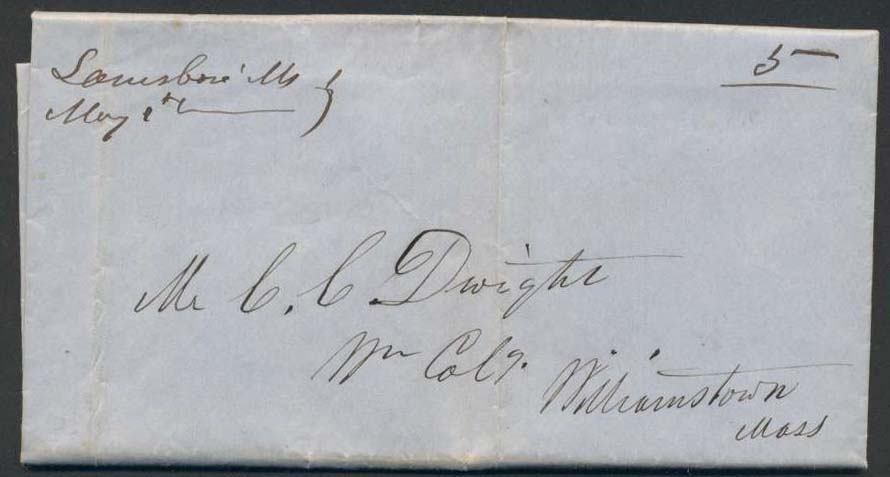 Lanesboro' Ms
May 1st
5
Mr C. C. Dwight
Wm Colg.
Williamstown
Mass